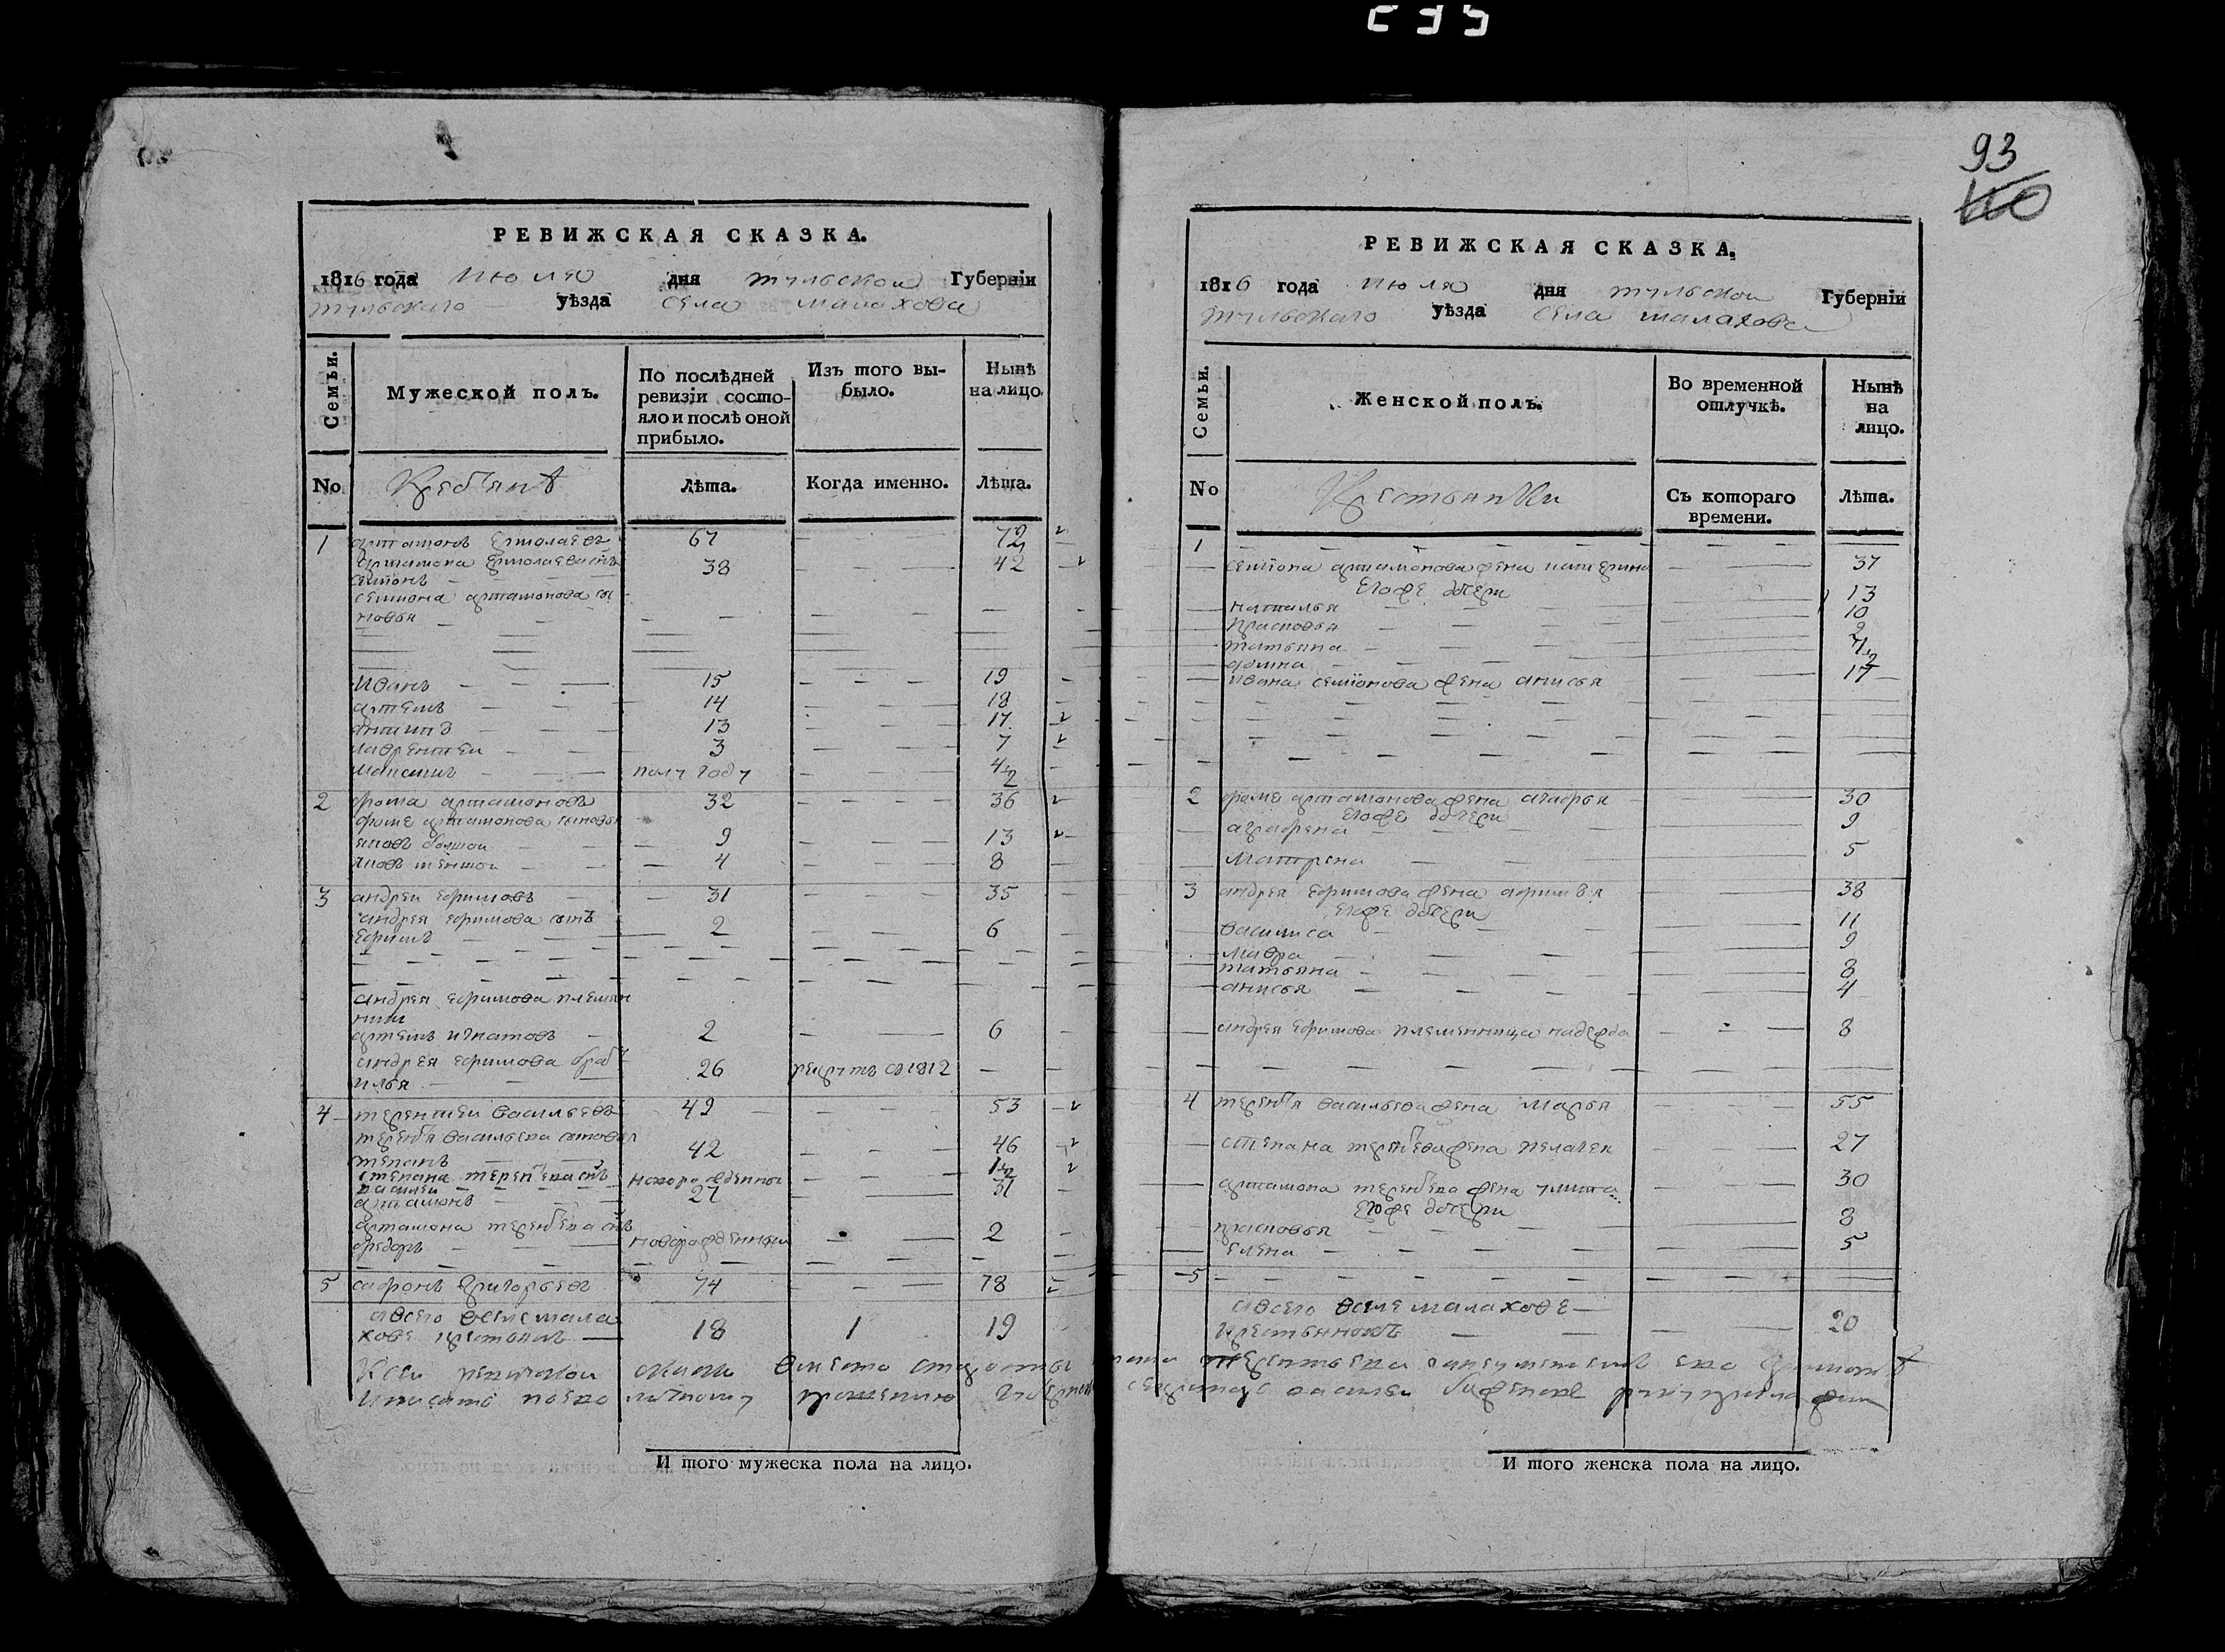 93
110
РЕВИЖСКАЯ СКАЗКА.
1816 года июля дня тульской Губерніи
тульскаго уѣзда села малахова
Семьи. Мужеской полъ. По послѣдней ревизіи состояло и послѣ оной прибыло. Изъ того выбыло. Нынѣ на лицо.
No Лѣта. Когда именно. Лѣта.
1 артамонъ ермолаевъ 67 72
артамона ермолаева снъ
семіонъ 38 42
семиона артамонова сы
новья
иванъ 15 19
артемъ 14 18
антипъ 13 17
лаврентеи 3 7
максимъ полу году 4 1/2
2 фома артамоновъ 32 36
фоме артамонова сыновья
яковъ болшои 9 13
яковъ меншои 4 8
3 андреи ефимовъ 31 35
андрея ефимова сынъ
ефимъ 2 6
андрея ефимова племян
ник
артемъ игнатовъ 2 6
андрея ефимова братъ
илья 26 рекрутъ в 1812
4 терентеи васильевъ 49 53
терентя васильева сыновья
степанъ 42 46
степана терентева снъ
василеи новорожденны 1 1/2
артамонъ 27 31
артамона терентева снъ
федоръ новорожденныи 2
5 сафонъ григорьевъ 74 78
а всего вселе мала
хове крестьянъ 18 1 19
И того мужеска пола на лицо.
РЕВИЖСКАЯ СКАЗКА.
1816 года июля дня тульской Губерніи
тульскаго уѣзда села малахова
Семьи. Женской полъ. Во временной отлучкѣ. Нынѣ на лицо.
No Крестьянки Съ котораго времени. Лѣта.
1
семіона артамонова жена катерина 37
егоже дочери
наталья 13
прасковья 10
татьяна
домна
ивана семіонова жена анисья 17
2 фоме артамонова жена агафья 30
егоже дочери
аграфена 9
матрена 5
3 андрея ефимова жена афимья 38
егоже дочери
василиса 11
мавра 9
татьяна 8
анисья 4
андрея ефимова племенница надежда 8
4 терентя васильева жена марья 55
степана терентева жена пелагея 27
артамона терентева жена улита 30
егоже дочери
прасковья 8
елена 5
5
а всего вселе малахове
крестьянокъ 20
И того женска пола на лицо.